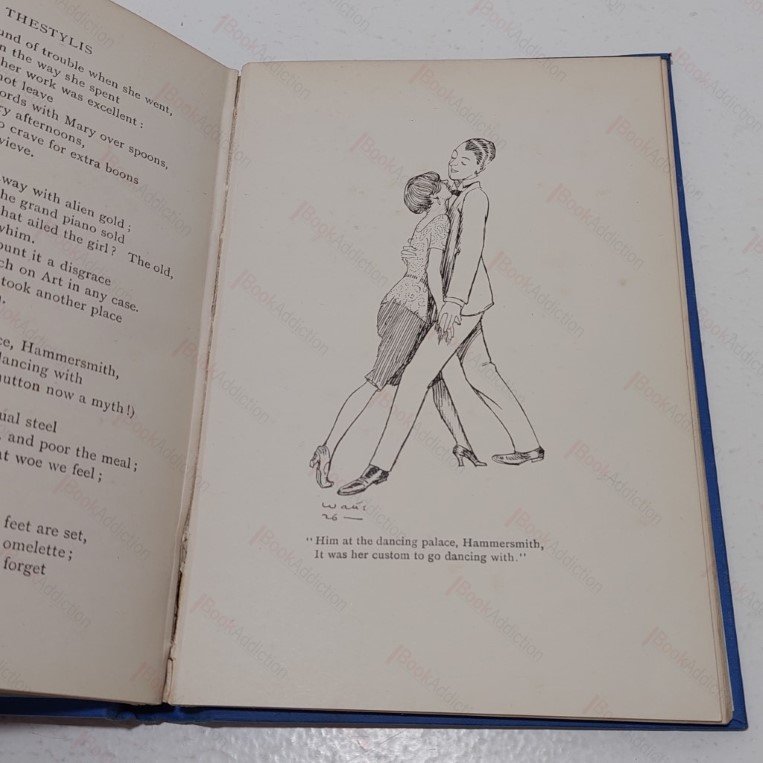 THESTYLIS
and of trouble when she went,
n the way she spent
her work was excellent:
not leave
ords with Mary over spoons,
ry afternoons,
o crave for extra boons
vieve.
way with alien gold;
he grand piano sold
hat ailed the girl? The old,
whim.
ount it a disgrace
ch on Art in any case.
took another place
ce, Hammersmith,
dancing with
utton now a myth!)
ual steel
, and poor the meal;
at woe we feel;
feet are set,
omelette;
forget
26
"Him at the dancing palace, Hammersmith,
It was her custom to go dancing with."
BookAddiction